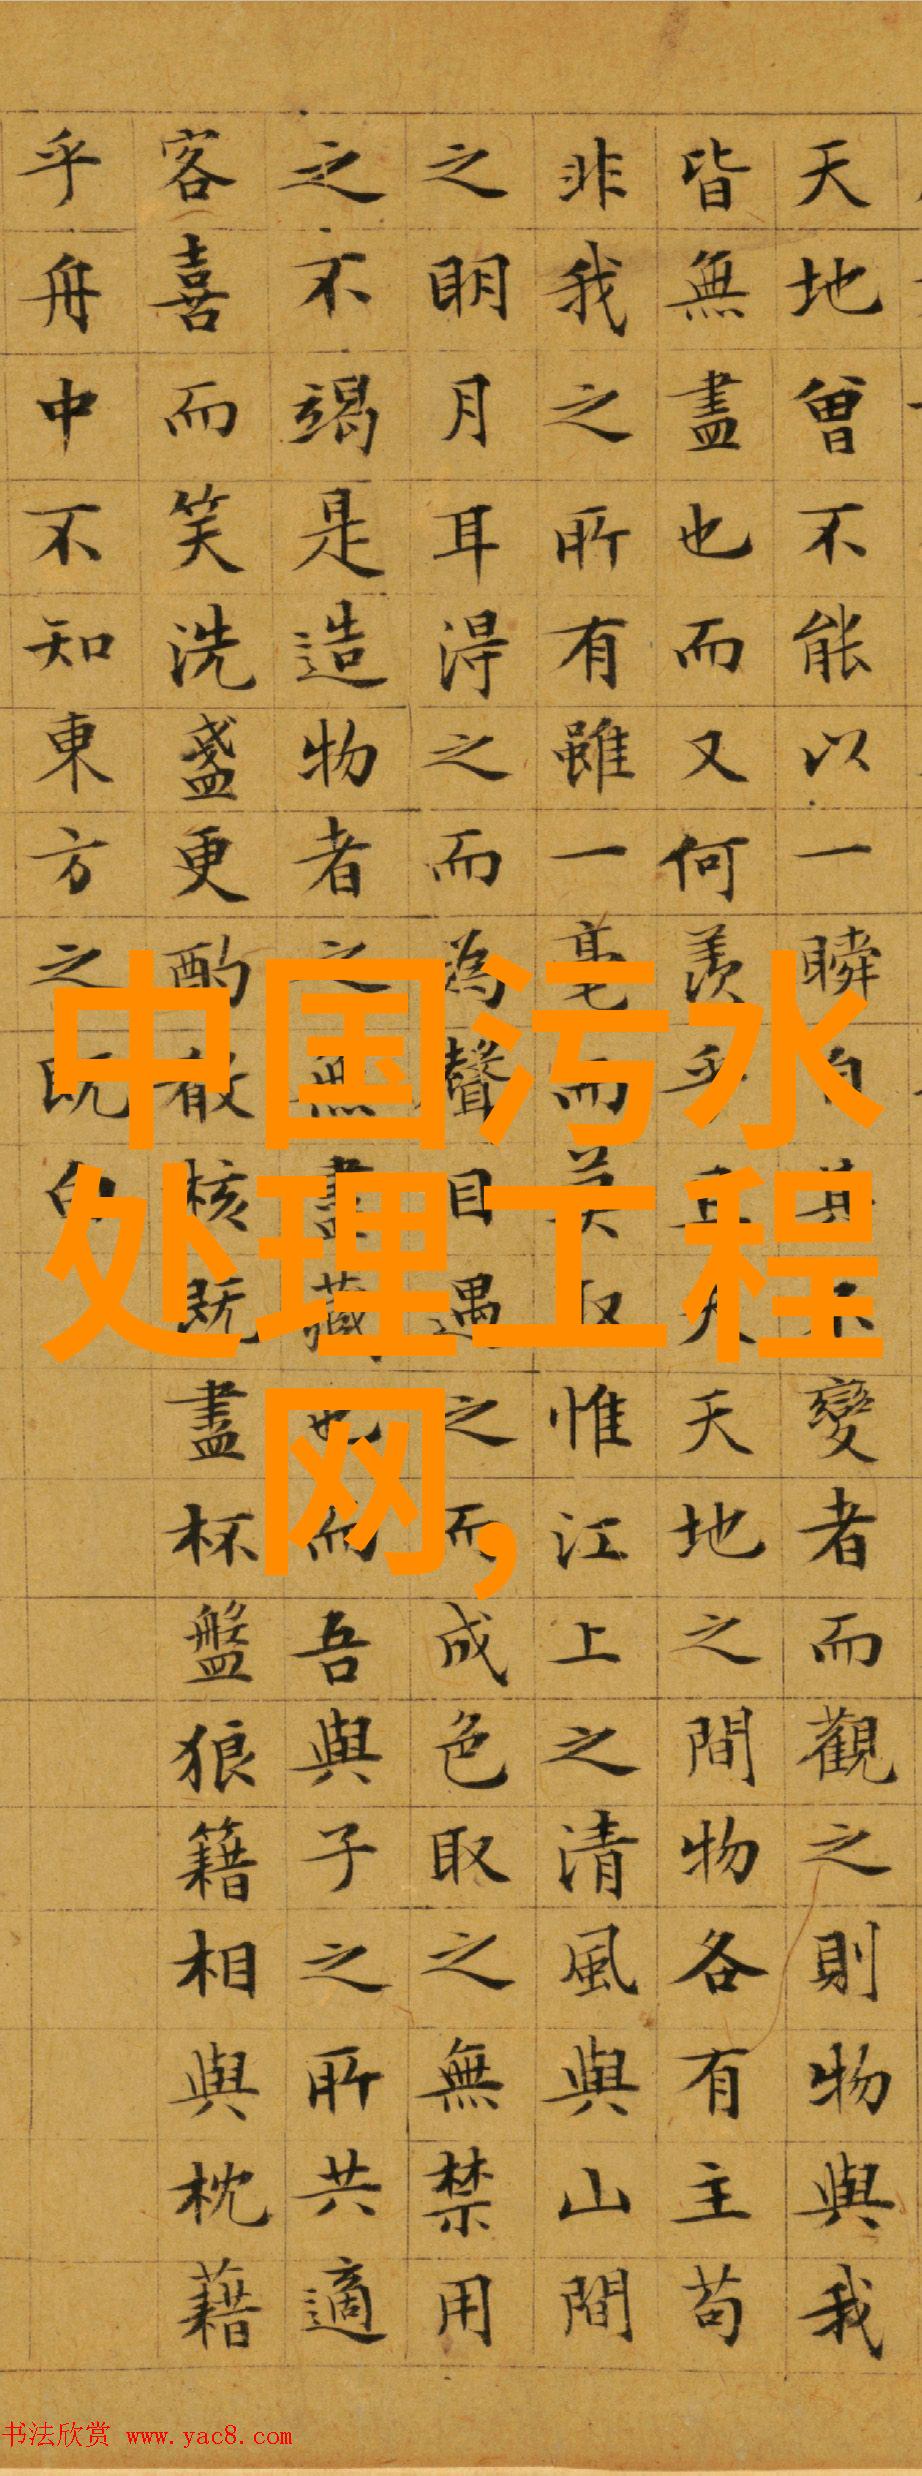 天地曾不能以一瞬自其不變者而觀之則物與我
皆無盡也而又何羨乎且夫天地之間物各有主苟
非我之所有雖一毫而莫取惟江上之清風與山間
之明月耳得之而為聲目遇之而成色取之無禁用
之不竭是造物者之無盡藏也而吾與子之所共適
客喜而笑洗盞更酌肴核既盡杯盤狼籍相與枕藉
乎舟中不知東方之既白
中国污水
处理工程
网,
书法欣赏 www.yac8.com